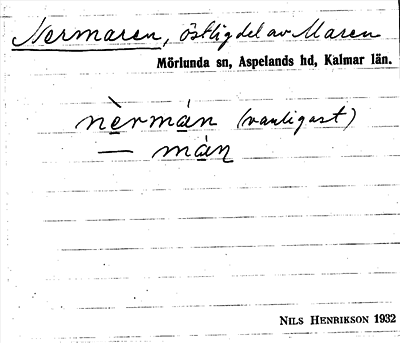 Nermaren, östlig del av Maren
Mörlunda sn, Aspelands hd, Kalmar län.
nèrmán (vanligast)
— máɳ
NILS HENRIKSON 1932